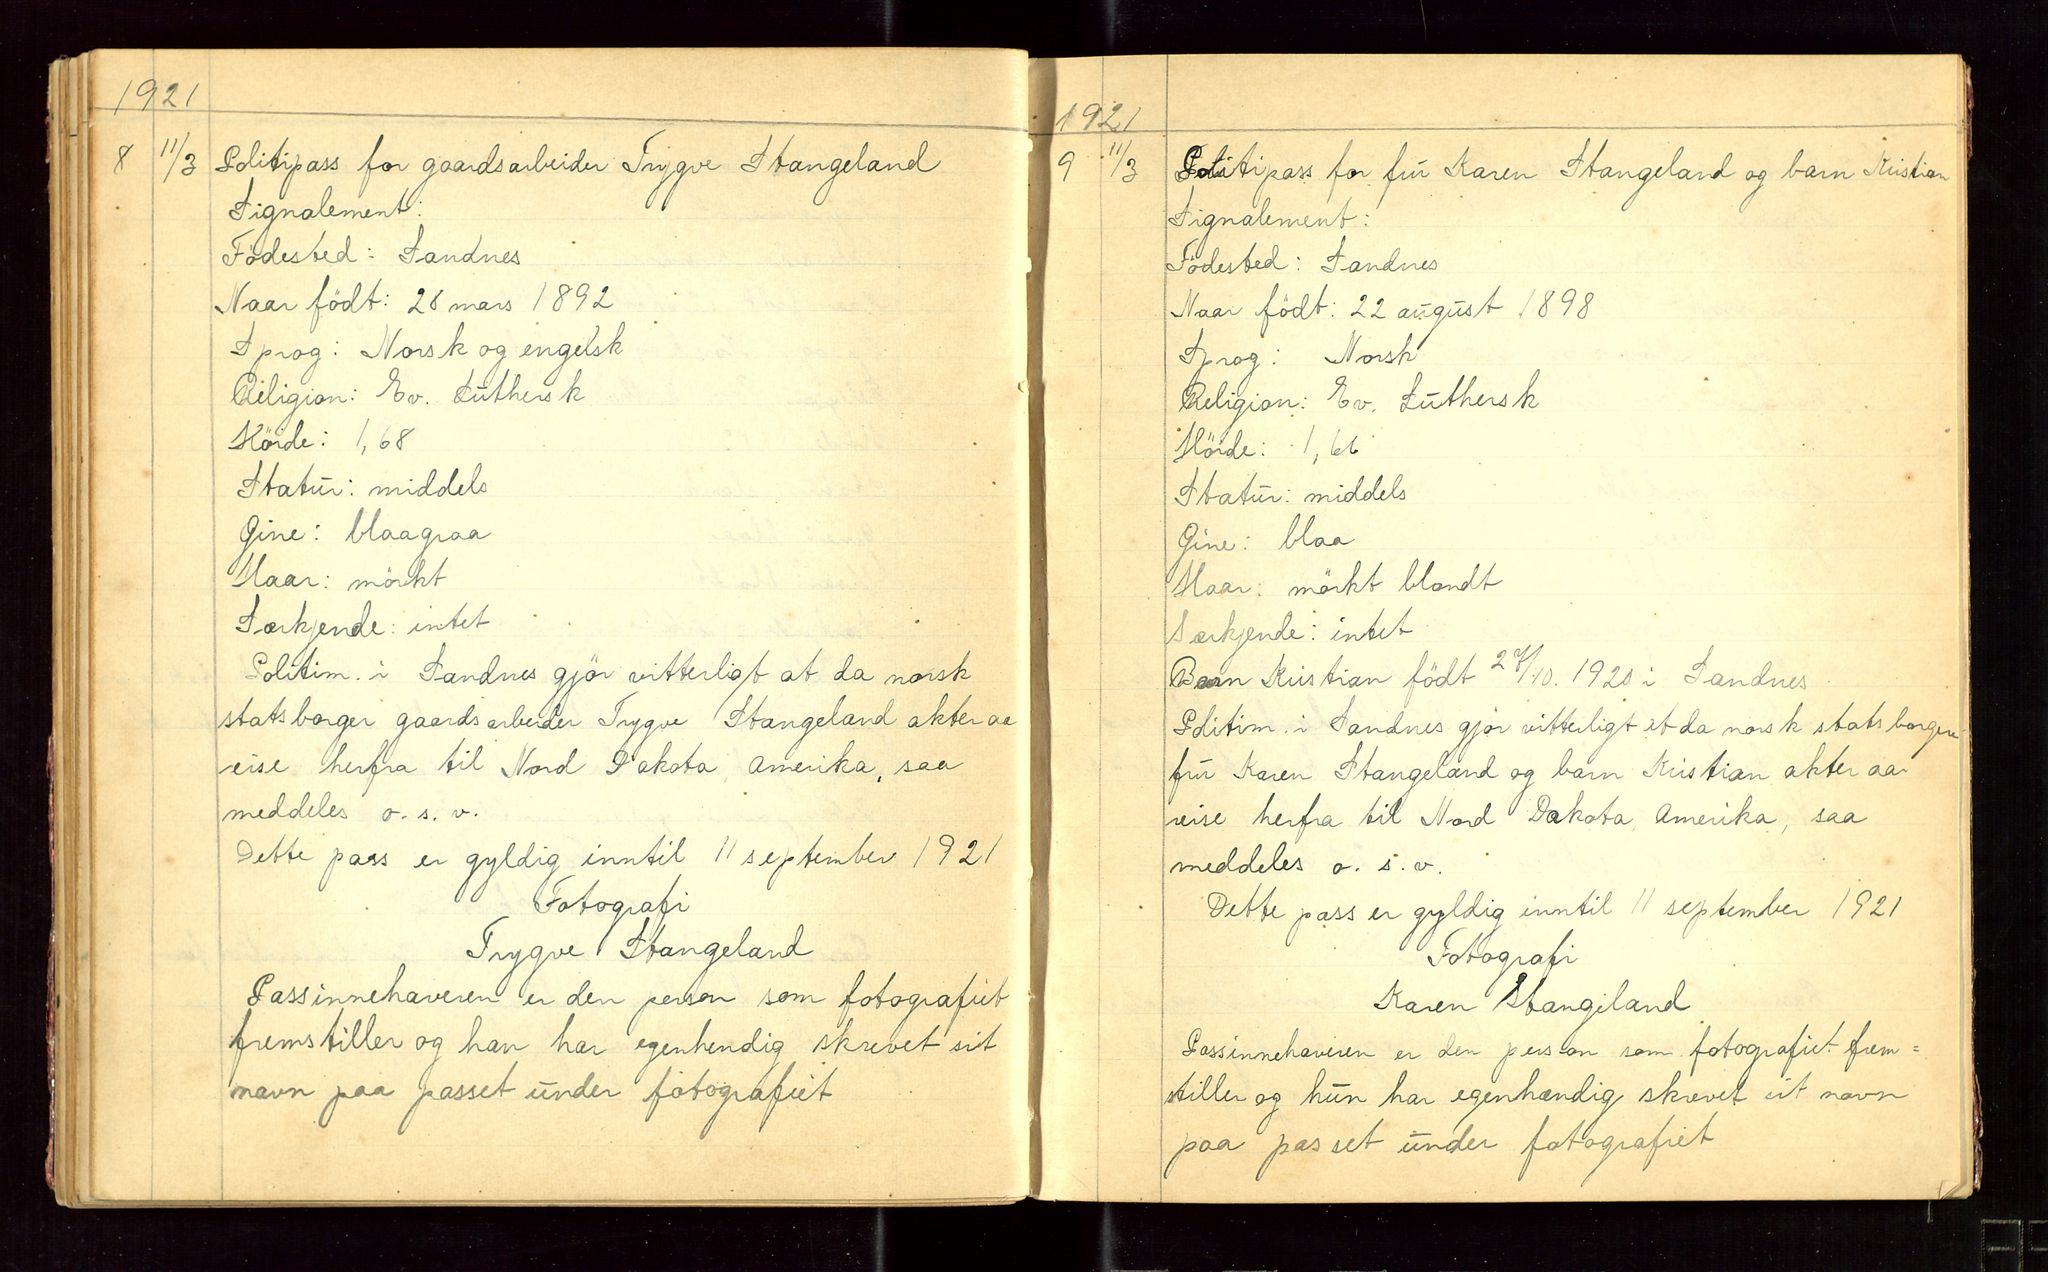 1921
8 11/3 Politipass for gaardsarbeider Trygve Stangeland
Signalement:
Födested: Sandnes
Naar födt: 28 mars 1892
Sprog: Norsk og engelsk
Religion: Ev. Luthersk
Höide: 1,68
Statur: middels
Öine: blaagraa
Haar: mörkt
Særkjende: intet
Politim. i Sandnes gjör vitterligt at da norsk
statsborger gaardsarbeider Trygve Stangeland akter aa
reise herfra til Nord Dakota, Amerika, saa
meddeles o. s. v.
Dette pass er gyldig inntil 11 september 1921
Fotografi
Trygve Stangeland
Passinnehaveren er den person som fotografiet
fremstiller og han har egenhendig skrevet sit
navn paa passet under fotografiet
1921
9 11/3 Politipass for fru Karen Stangeland og barn Kristian
Signalement:
Födested: Sandnes
Naar födt: 22 august 1898
Sprog: Norsk
Religion: Ev. Luthersk
Höide: 1,66
Statur: middels
Öine: blaa
Haar: mörkt blondt
Særkjende: intet
Barn Kristian födt 27/10. 1920 i Sandnes
Politim. i Sandnes gjör vitterligt at da norsk statsborger
fru Karen Stangeland og barn Kristian akter aa
reise herfra til Nord Dakota, Amerika, saa
meddeles o. s. v.
Dette pass er gyldig inntil 11 september 1921
Fotografi
Karen Stangeland
Passinnehaveren er den person som fotografiet frem=
stiller og hun har egenhændig skrevet sit navn
paa passet under fotografiet